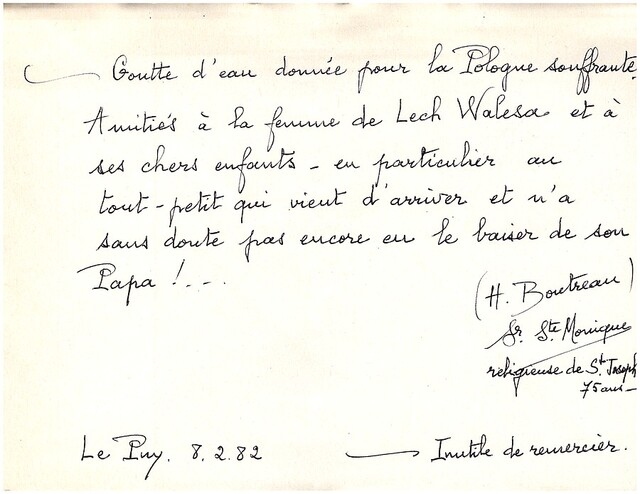 Goutte d'eau donnée pour la Pologne souffrante.
Amitiés à la femme de Lech Walesa et à
ses chers enfants - en particulier au
tout-petit qui vient d'arriver et n'a
sans doute pas encore eu le baiser de son
Papa !...
(H. Boutreau)
Sr. Ste Monique
religieuse de St Joseph
75 ans -
Le Puy. 8.2.82
Inutile de remercier.